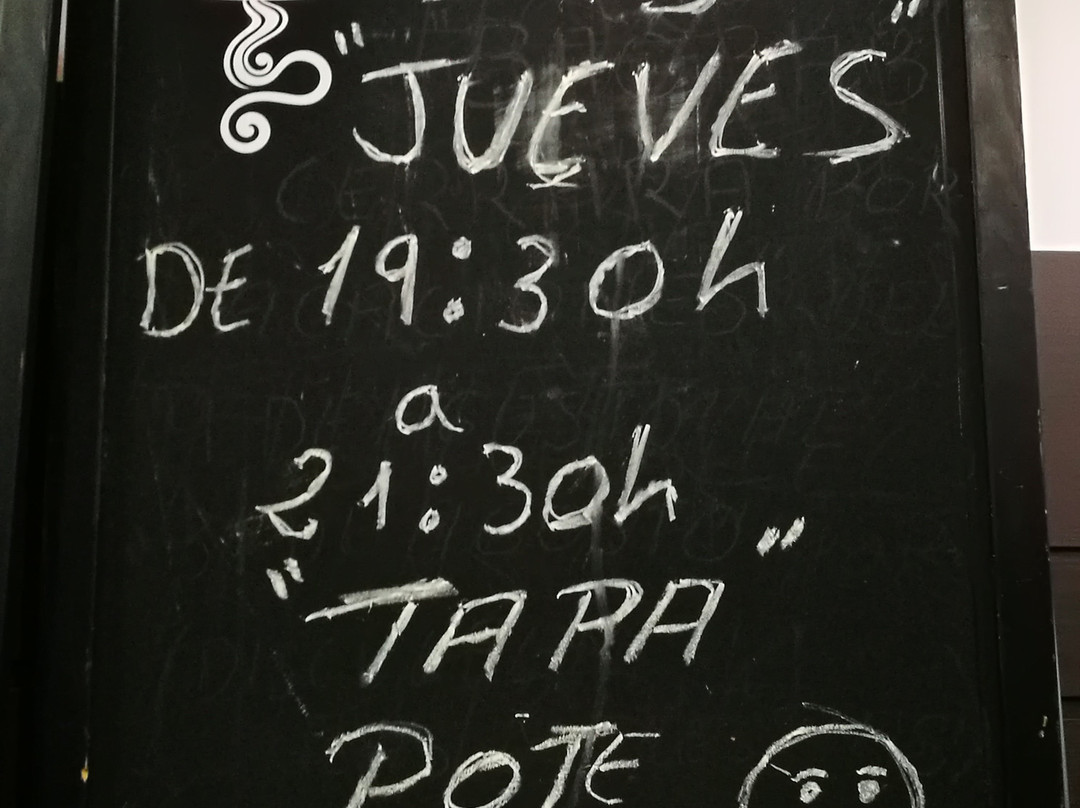 "JUEVES"
DE 19:30h
a
21:30h
"TAPA"
POTE